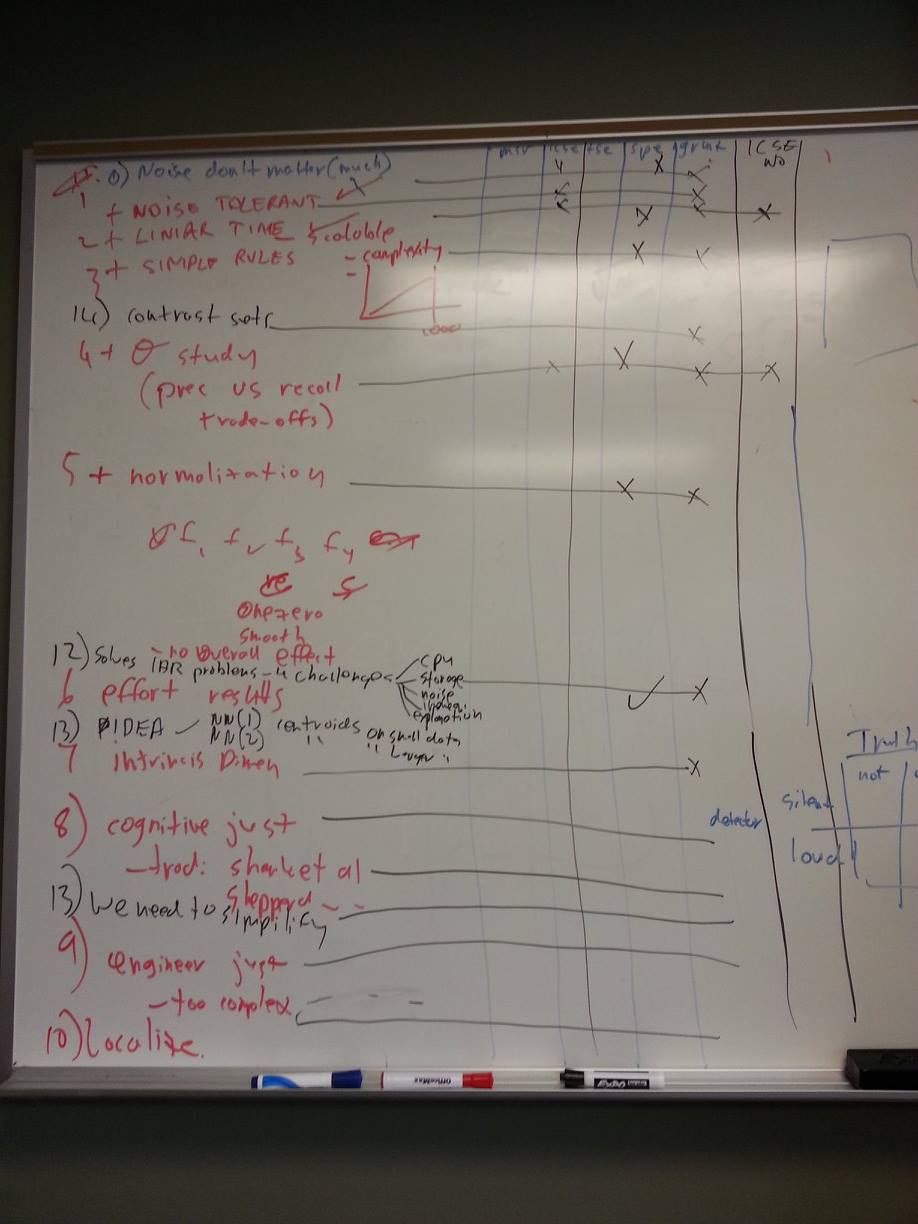 msr icse tse spe ggrant ICSE
NO
0) Noise don't matter (much)
1 + NOISE TOLERANT
2 + LINIAR TIME & scalable
3 + SIMPLE RULES - complexity
14) contrast sets
4 + θ study
(prec vs recall
trade-offs)
5 + normalization
f1 f2 f3 f4
onezero
smooth
- no overall effect
12) Solves IBR problems - 4 challenges
cpu
storage
noise
explanation
6 effort results
13) IDEA NN(1) centroids on small data
NN(2) " " Larger "
7 Intrincis Dimen
8) cognitive just
- trad: shark et al
Shepperd - -
13) we need to simplify
9) engineer just
- too complex
10) localize
Truth
not
detector silent
loud
OfficeMax
EXPO